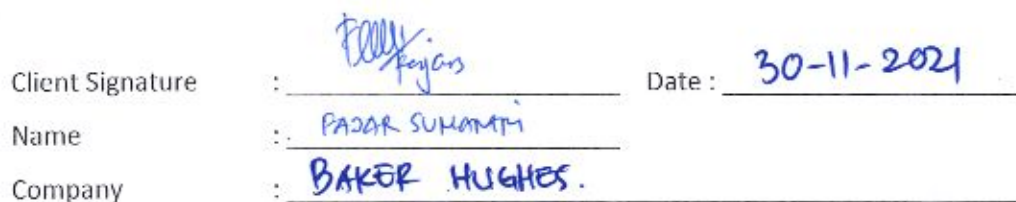 Client Signature : Date : 30-11-2021
Name : FAJAR
Company : BAKER HUGHES.